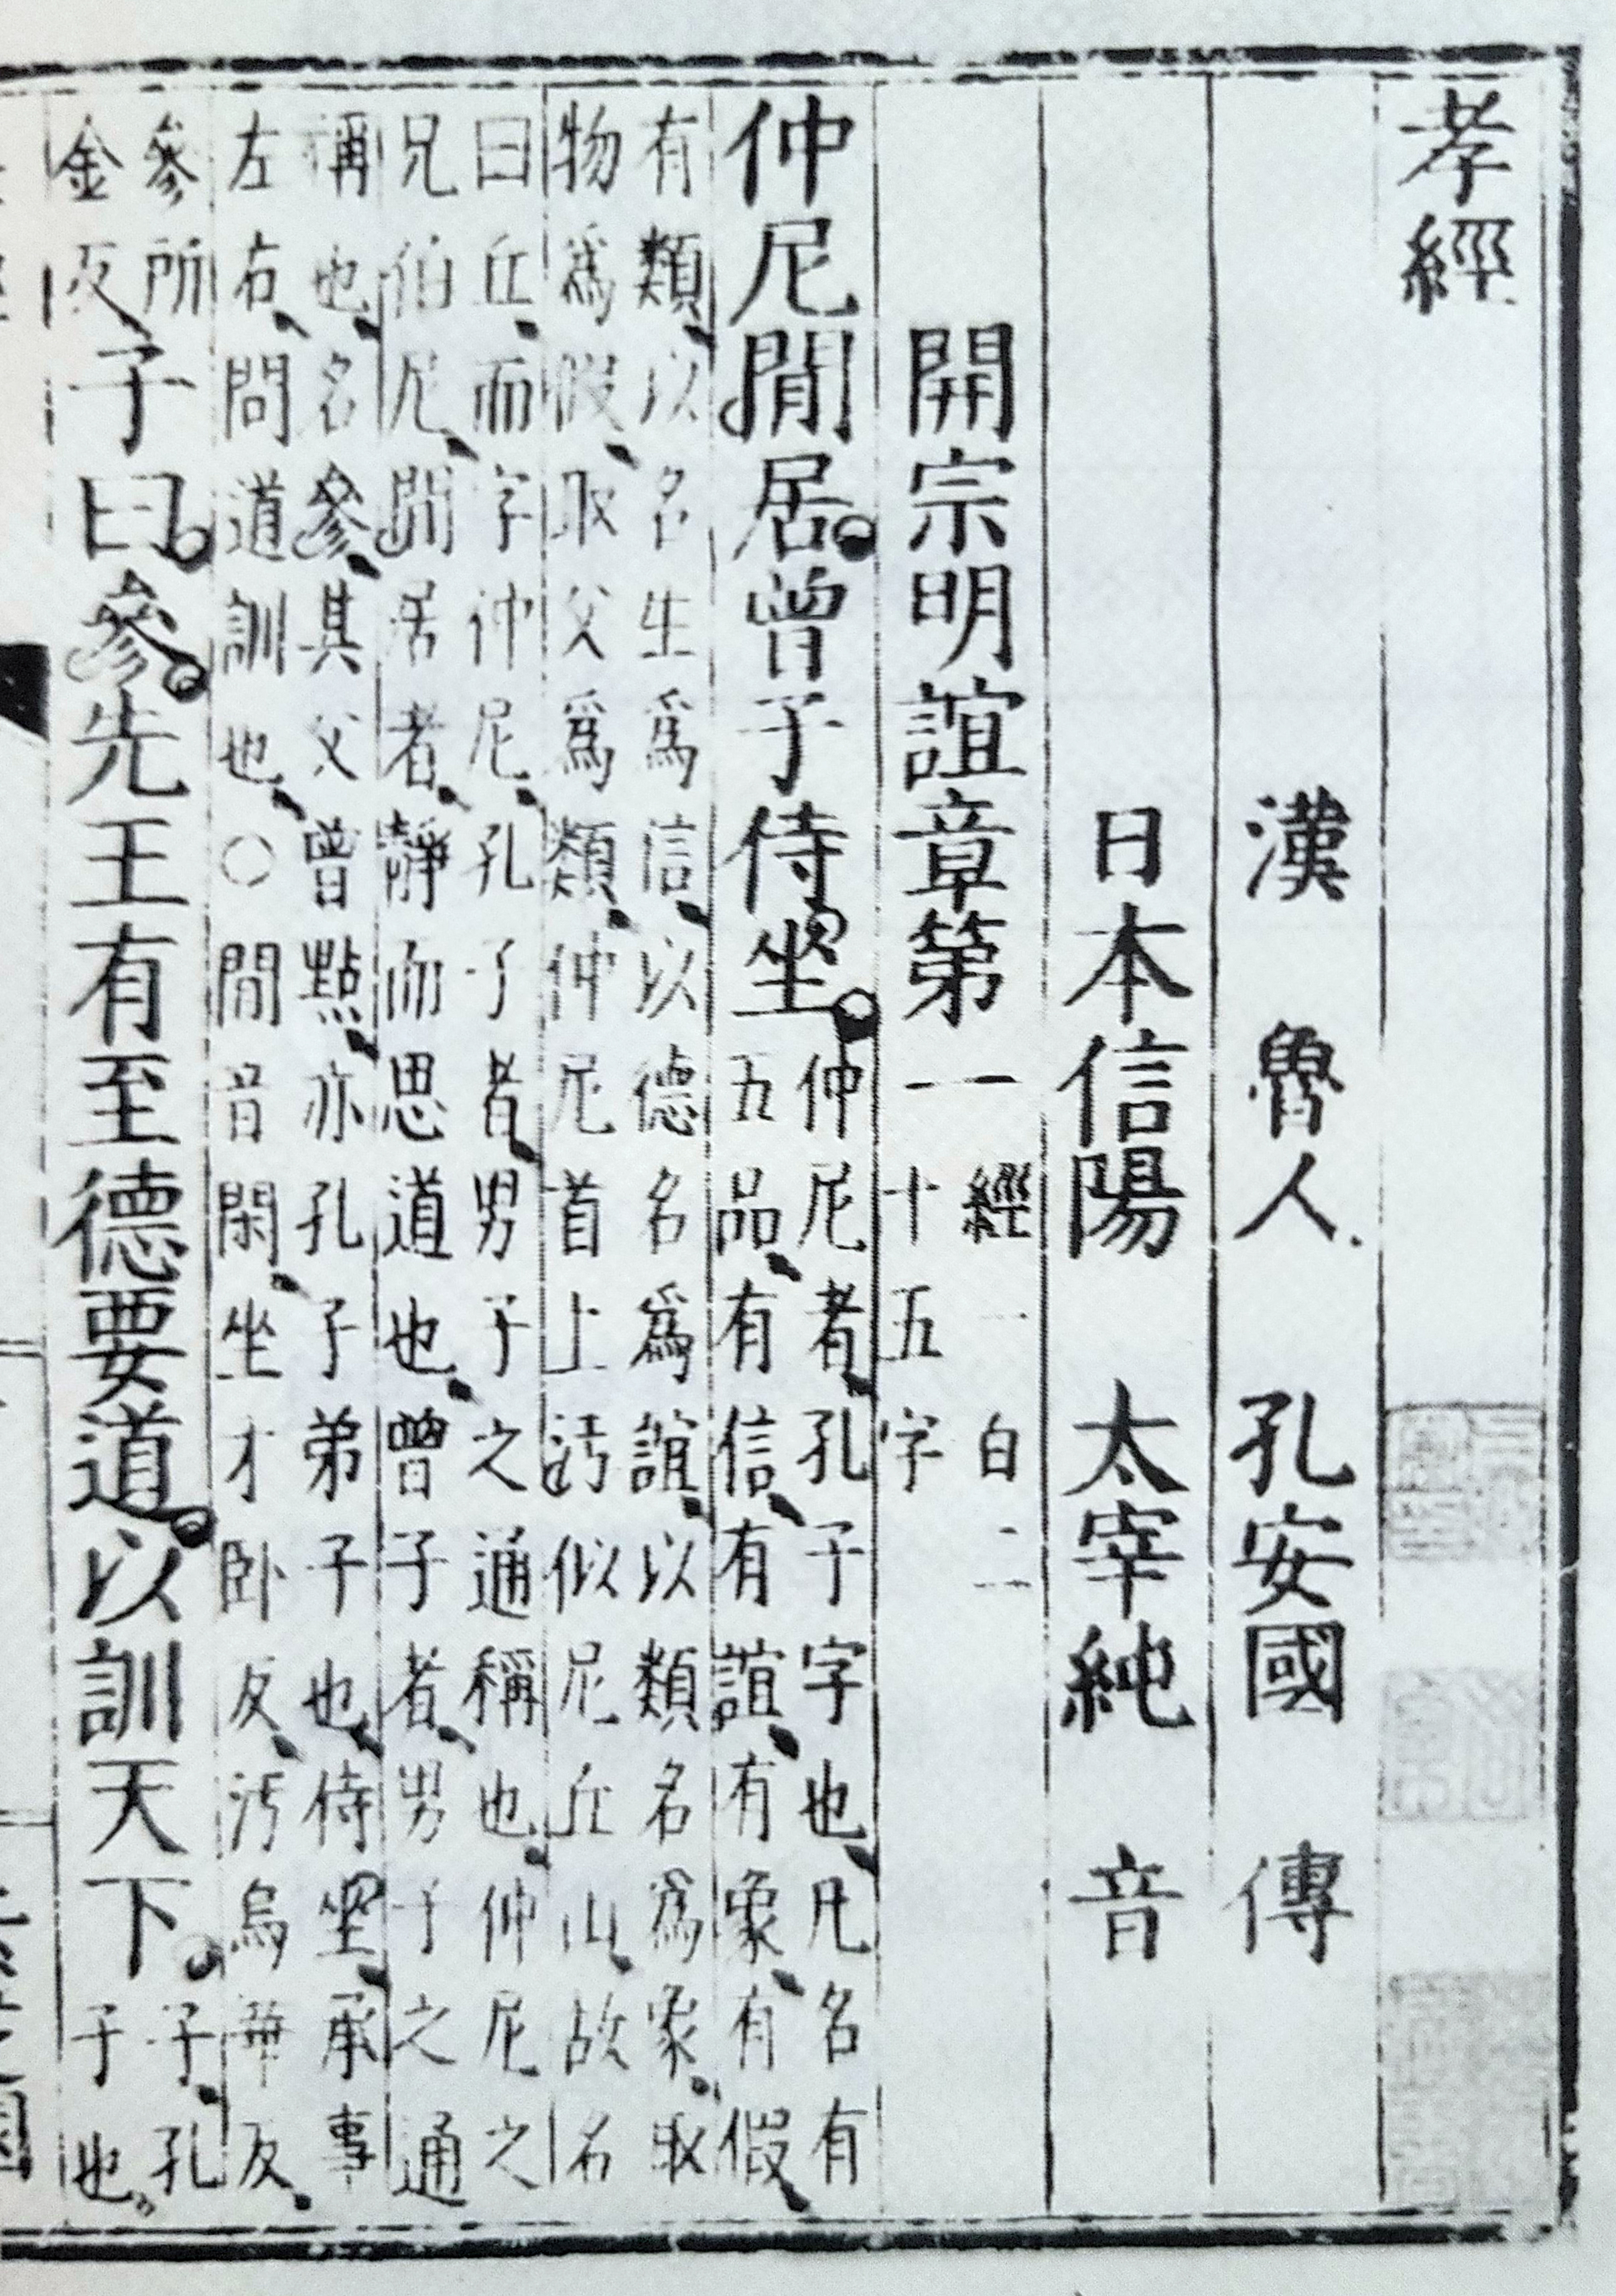 孝經
漢 魯人 孔安國 傳
日本信陽 太宰純 音
開宗明誼章第一
經一百二
十五字
仲尼閒居。曾子侍坐。
仲尼者、孔子字也、凡名有
五品、有信、有誼、有象、有假、
有類、以名生爲信、以德名爲誼、以類名爲象、取
物爲假、取父爲類、仲尼首上汚似尼丘山、故名
曰丘、而字仲尼、孔子者、男子之通稱也、仲尼之
兄伯尼、閒居者、靜而思道也、曾子者、男子之通
稱也、名參、其父曾點、亦孔子弟子也、侍坐、承事
左右、問道訓也、○閒音閑、坐才卧反、汚烏華反、
參所
金反
子曰。參。先王有至德要道。以訓天下。
子、孔
子也、